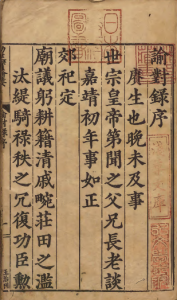 諭對錄序
賡生也晚未及事
世宗皇帝第聞之父兄長老談
嘉靖初年事如正
郊祀定
廟議躬耕籍清戚畹莊田之濫
汰緹騎祿秩之冗復功臣勲